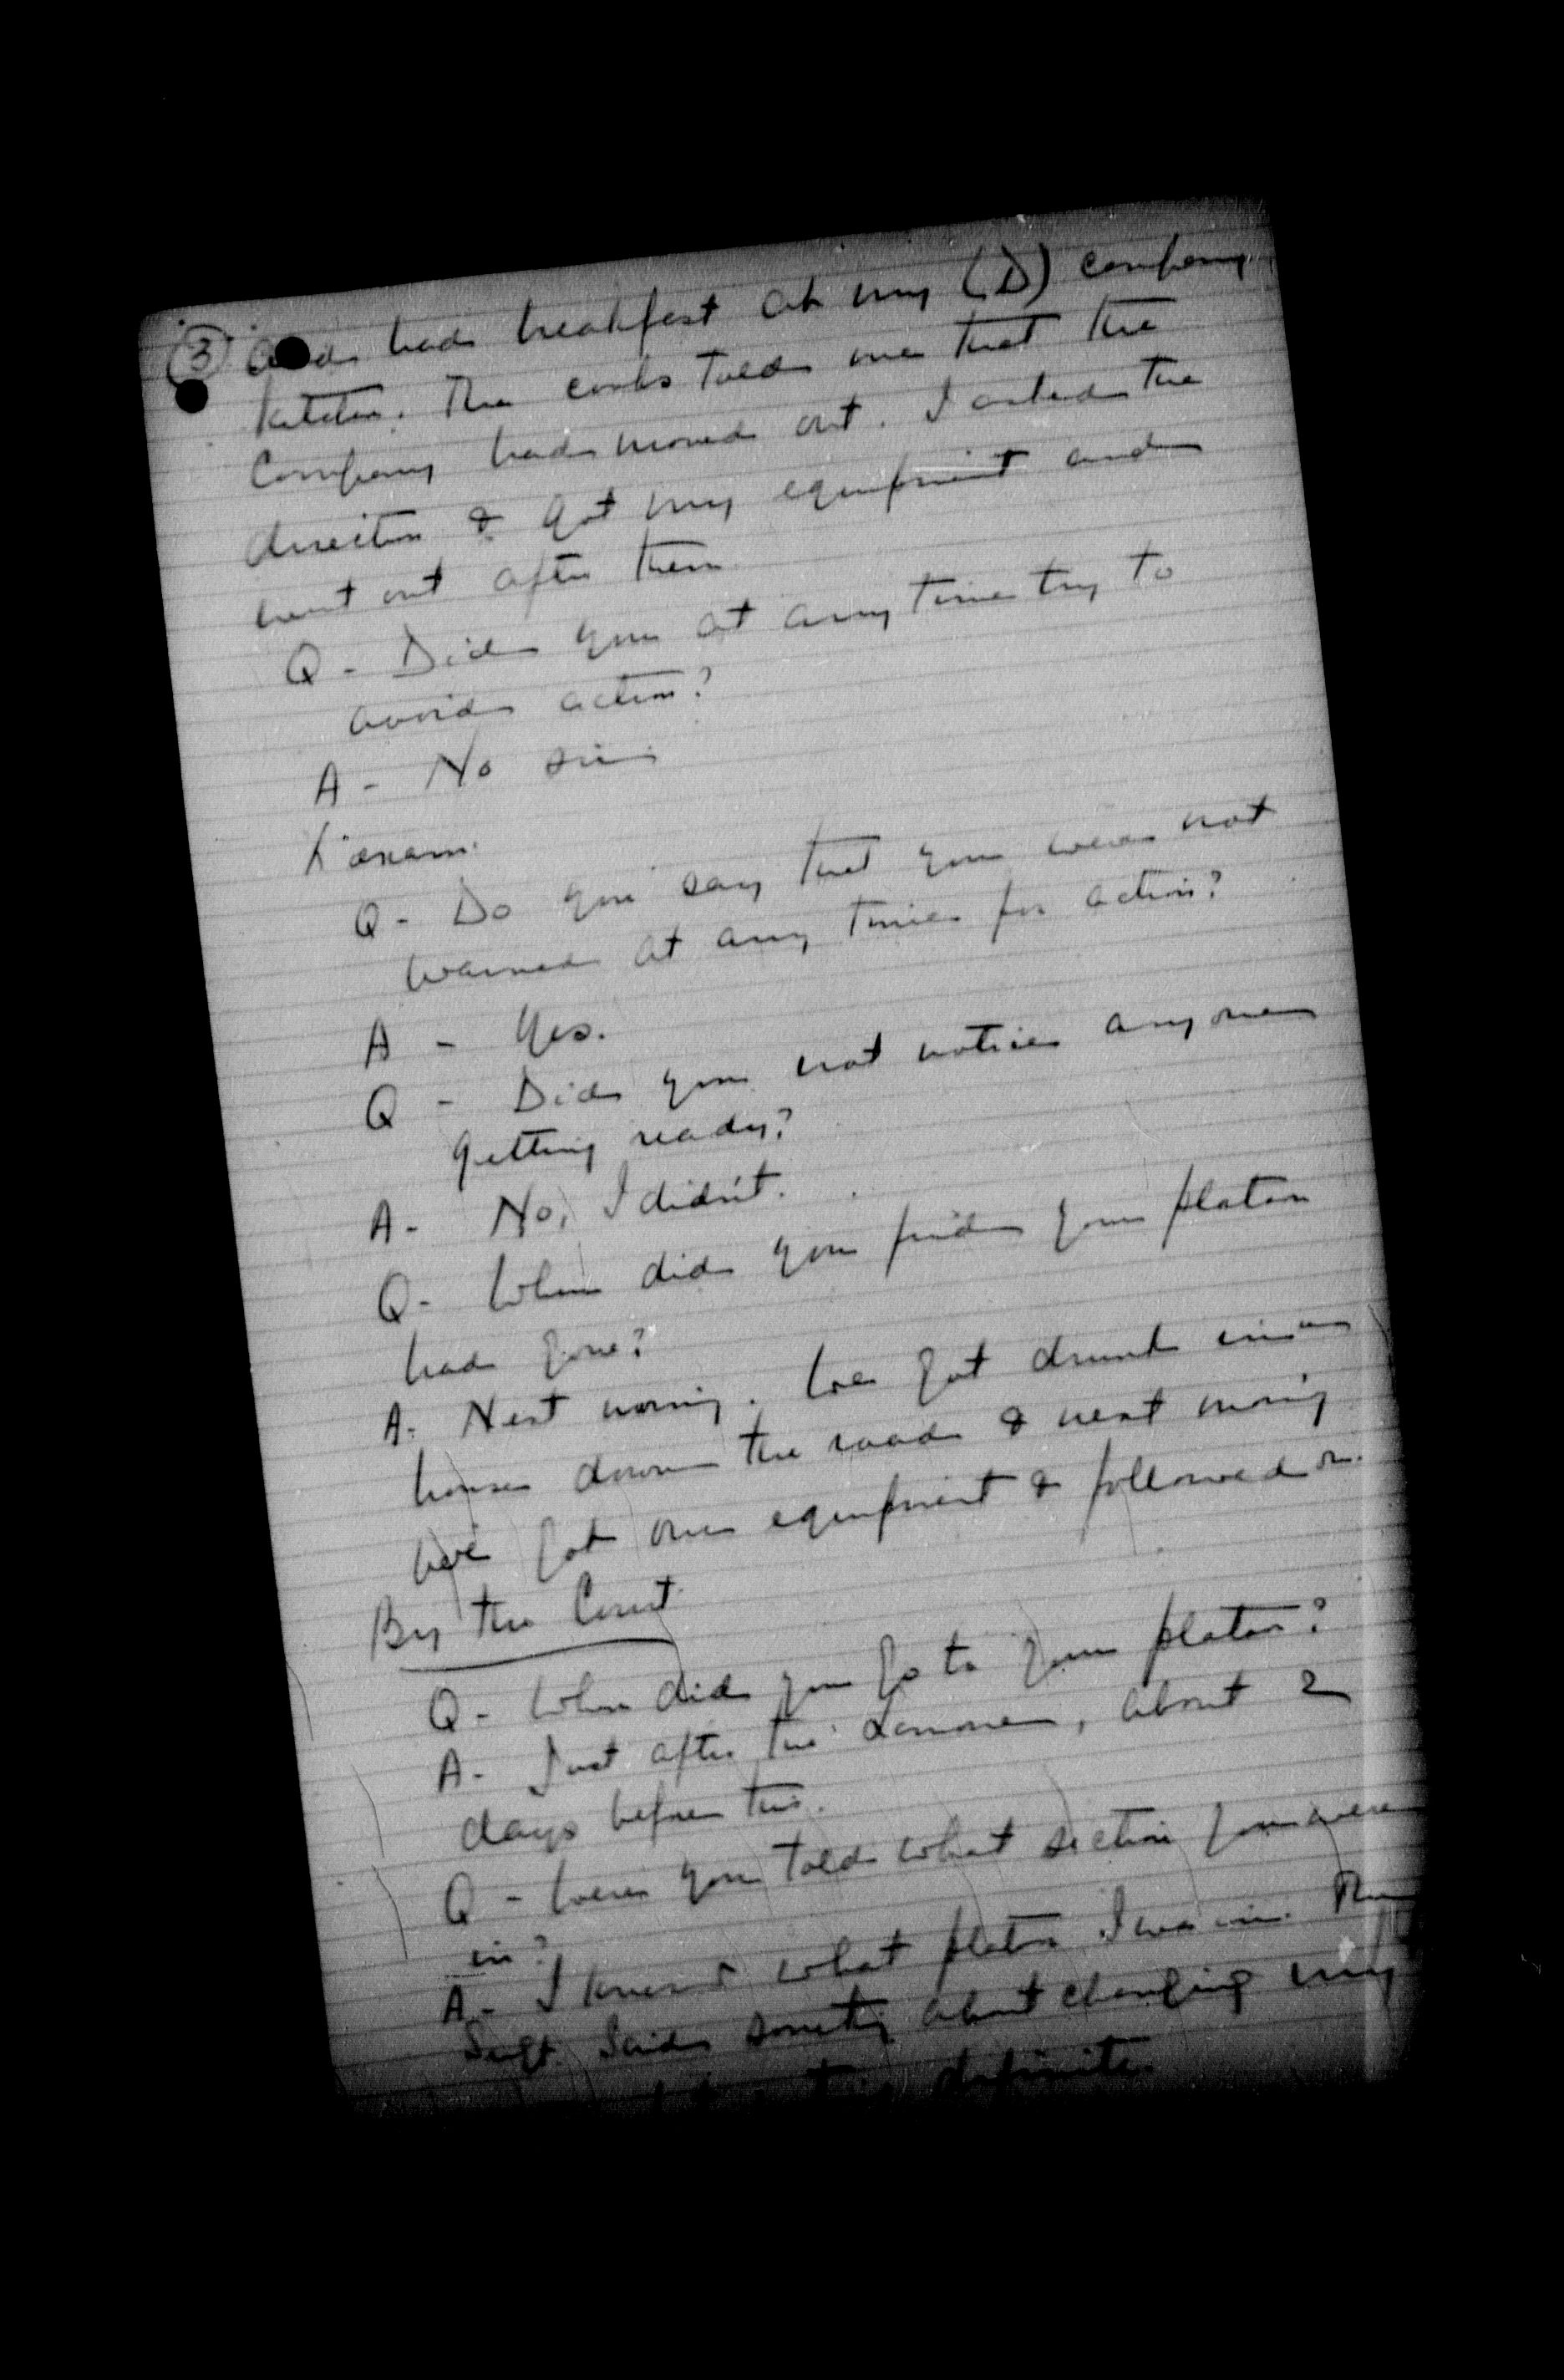 (3) and had breakfast at my (D) company
kitchen. The cooks told me that the
Company had moved out. I asked the
direction & got my equipment and
went out after them.
Q - Did you at any time try to
avoid action?
A - No sir.
X'exam.
Q - Do you say that you were not
warned at any time for action?
A - Yes.
Q - Did you not notice anyone
getting ready?
A - No, I didn't.
Q - When did you find your platoon
had gone?
A. Next morning. We got drunk in a
house down the road & next morning
we got our equipment & followed on.
By the Court
Q - When did you go to your platoon?
A - Just after the Somme, about 2
days before this.
Q - Were you told what section you were
in?
A - I knew what platoon I was in. The
Sergt. said something about changing my
definite.